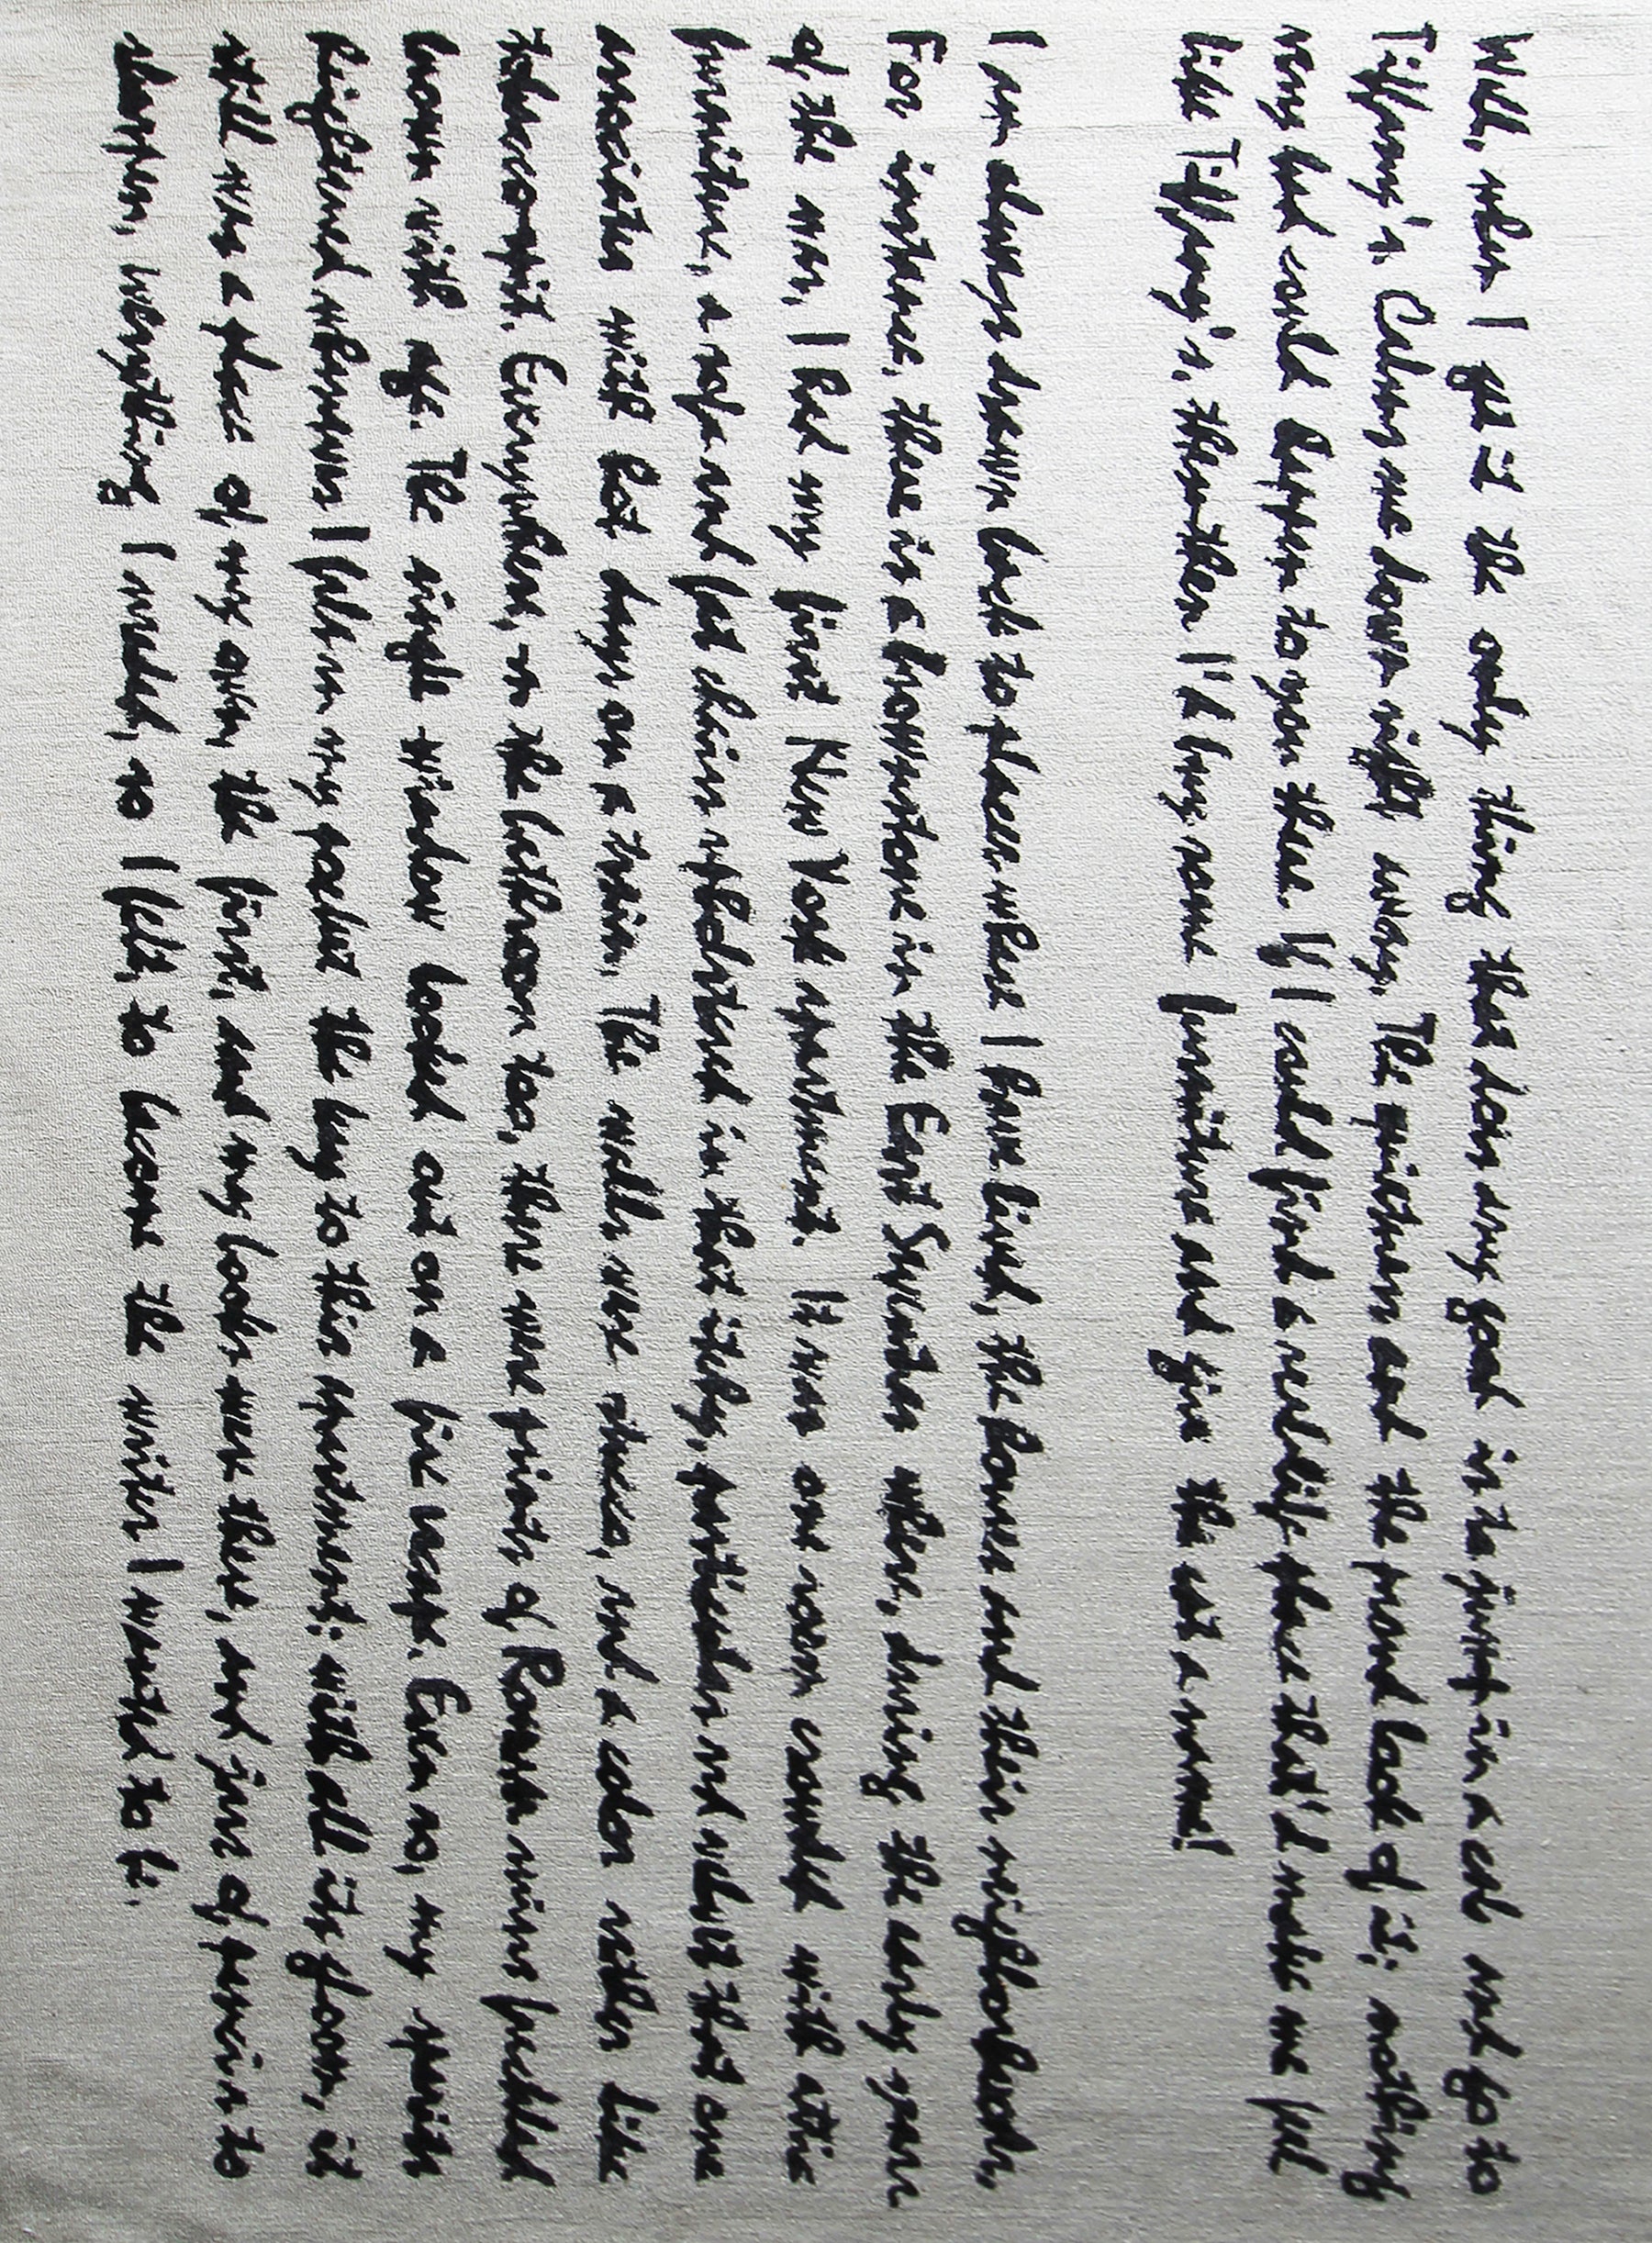 Well, when I get it the only thing that does any good is to jump in a cab and go to
Tiffany's. Calms me down right away. The quietness and the proud look of it; nothing
very bad could happen to you there. If I could find a real-life place that'd make me feel
like Tiffany's, then then I'd buy some furniture and give the cat a name!
I am always drawn back to places where I have lived, the houses and their neighborhoods.
For instance, there is a brownstone in the East Seventies where, during the early years
of the war, I had my first New York apartment. It was one room crowded with attic
furniture, a sofa and fat chairs upholstered in that itchy, particular red velvet that one
associates with hot days on a train. The walls were stucco, and a color rather like
tobacco-spit. Everywhere, in the bathroom too, there were prints of Roman ruins freckled
brown with age. The single window looked out on a fire escape. Even so, my spirits
heightened whenever I felt in my pocket the key to this apartment; with all its gloom, it
still was a place of my own, the first, and my books were there, and jars of pencils to
sharpen, everything I needed, so I felt, to become the writer I wanted to be.